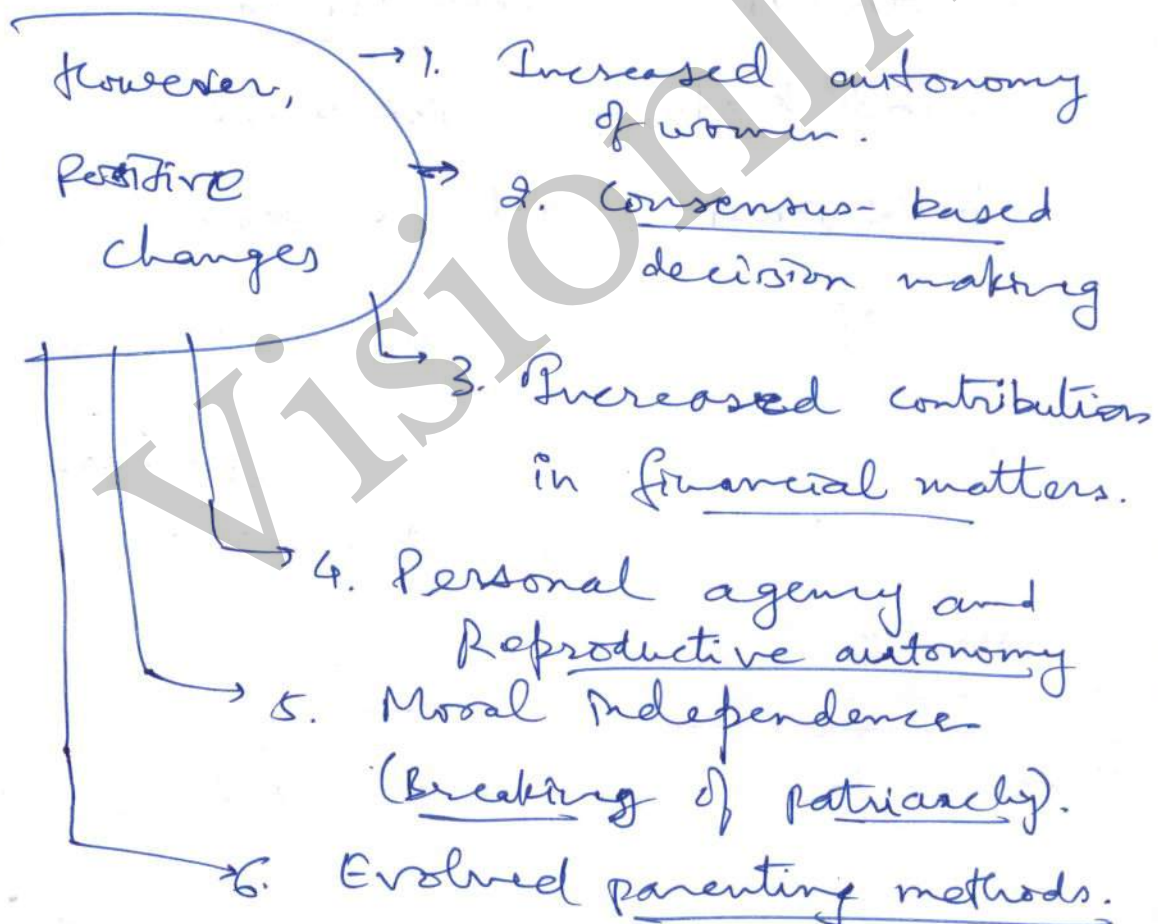 However,
Positive
changes
1. Increased autonomy
of women.
2. Consensus-based
decision making
3. Increased contribution
in financial matters.
4. Personal agency and
Reproductive autonomy
5. Moral independence
(Breaking of patriarchy).
6. Evolved parenting methods.
VisionIA